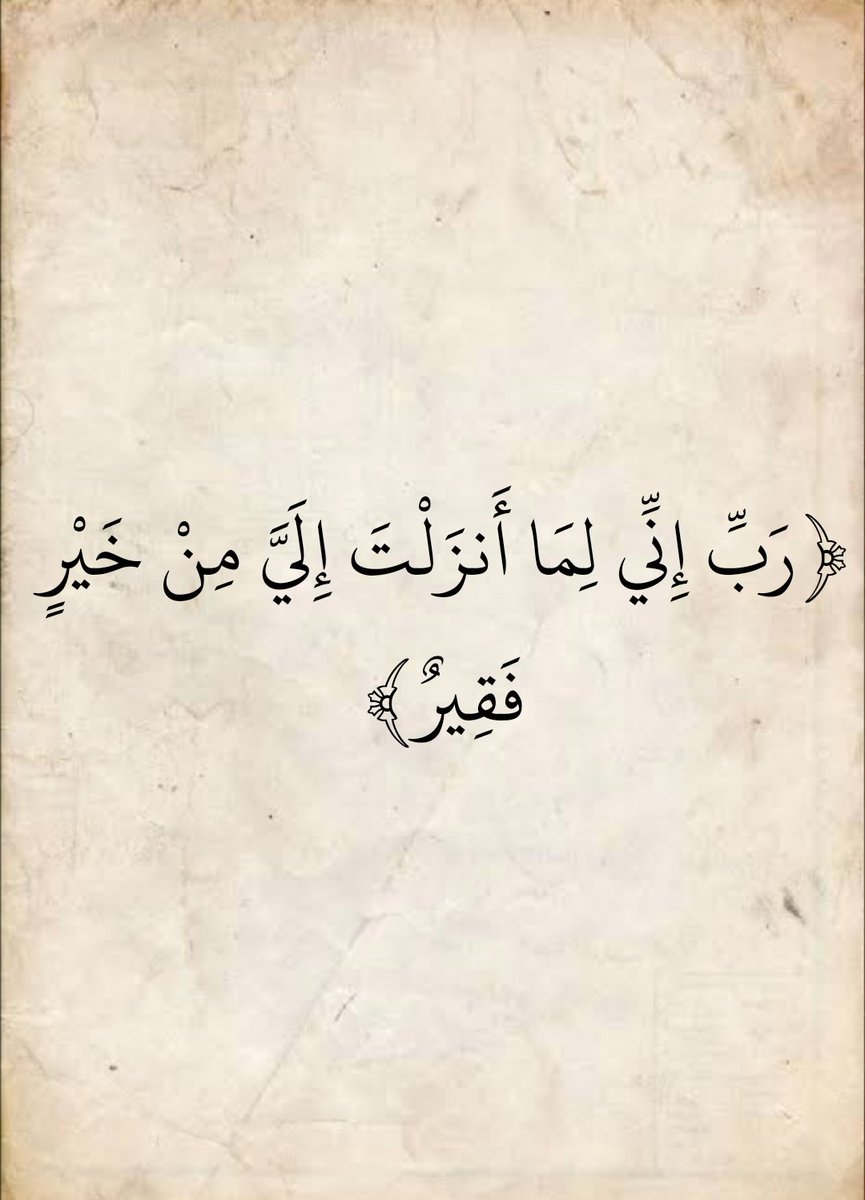 ﴿رَبِّ إِنِّي لِمَا أَنزَلْتَ إِلَيَّ مِنْ خَيْرٍ
فَقِيرٌ﴾